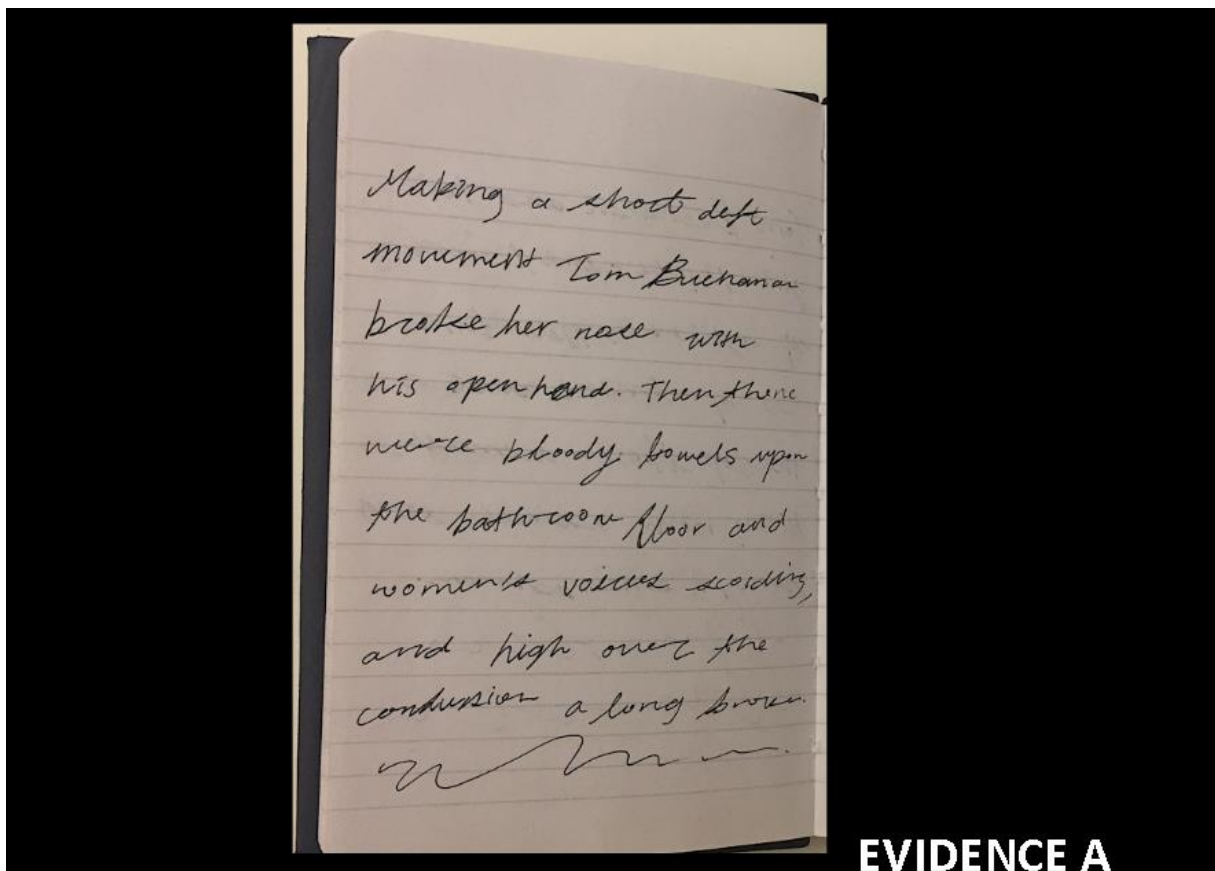 Making a short deft
movement Tom Buchanan
broke her nose with
his open hand. Then there
were bloody towels upon
the bathroom floor and
women's voices scolding,
and high over the
confusion a long broken
EVIDENCE A